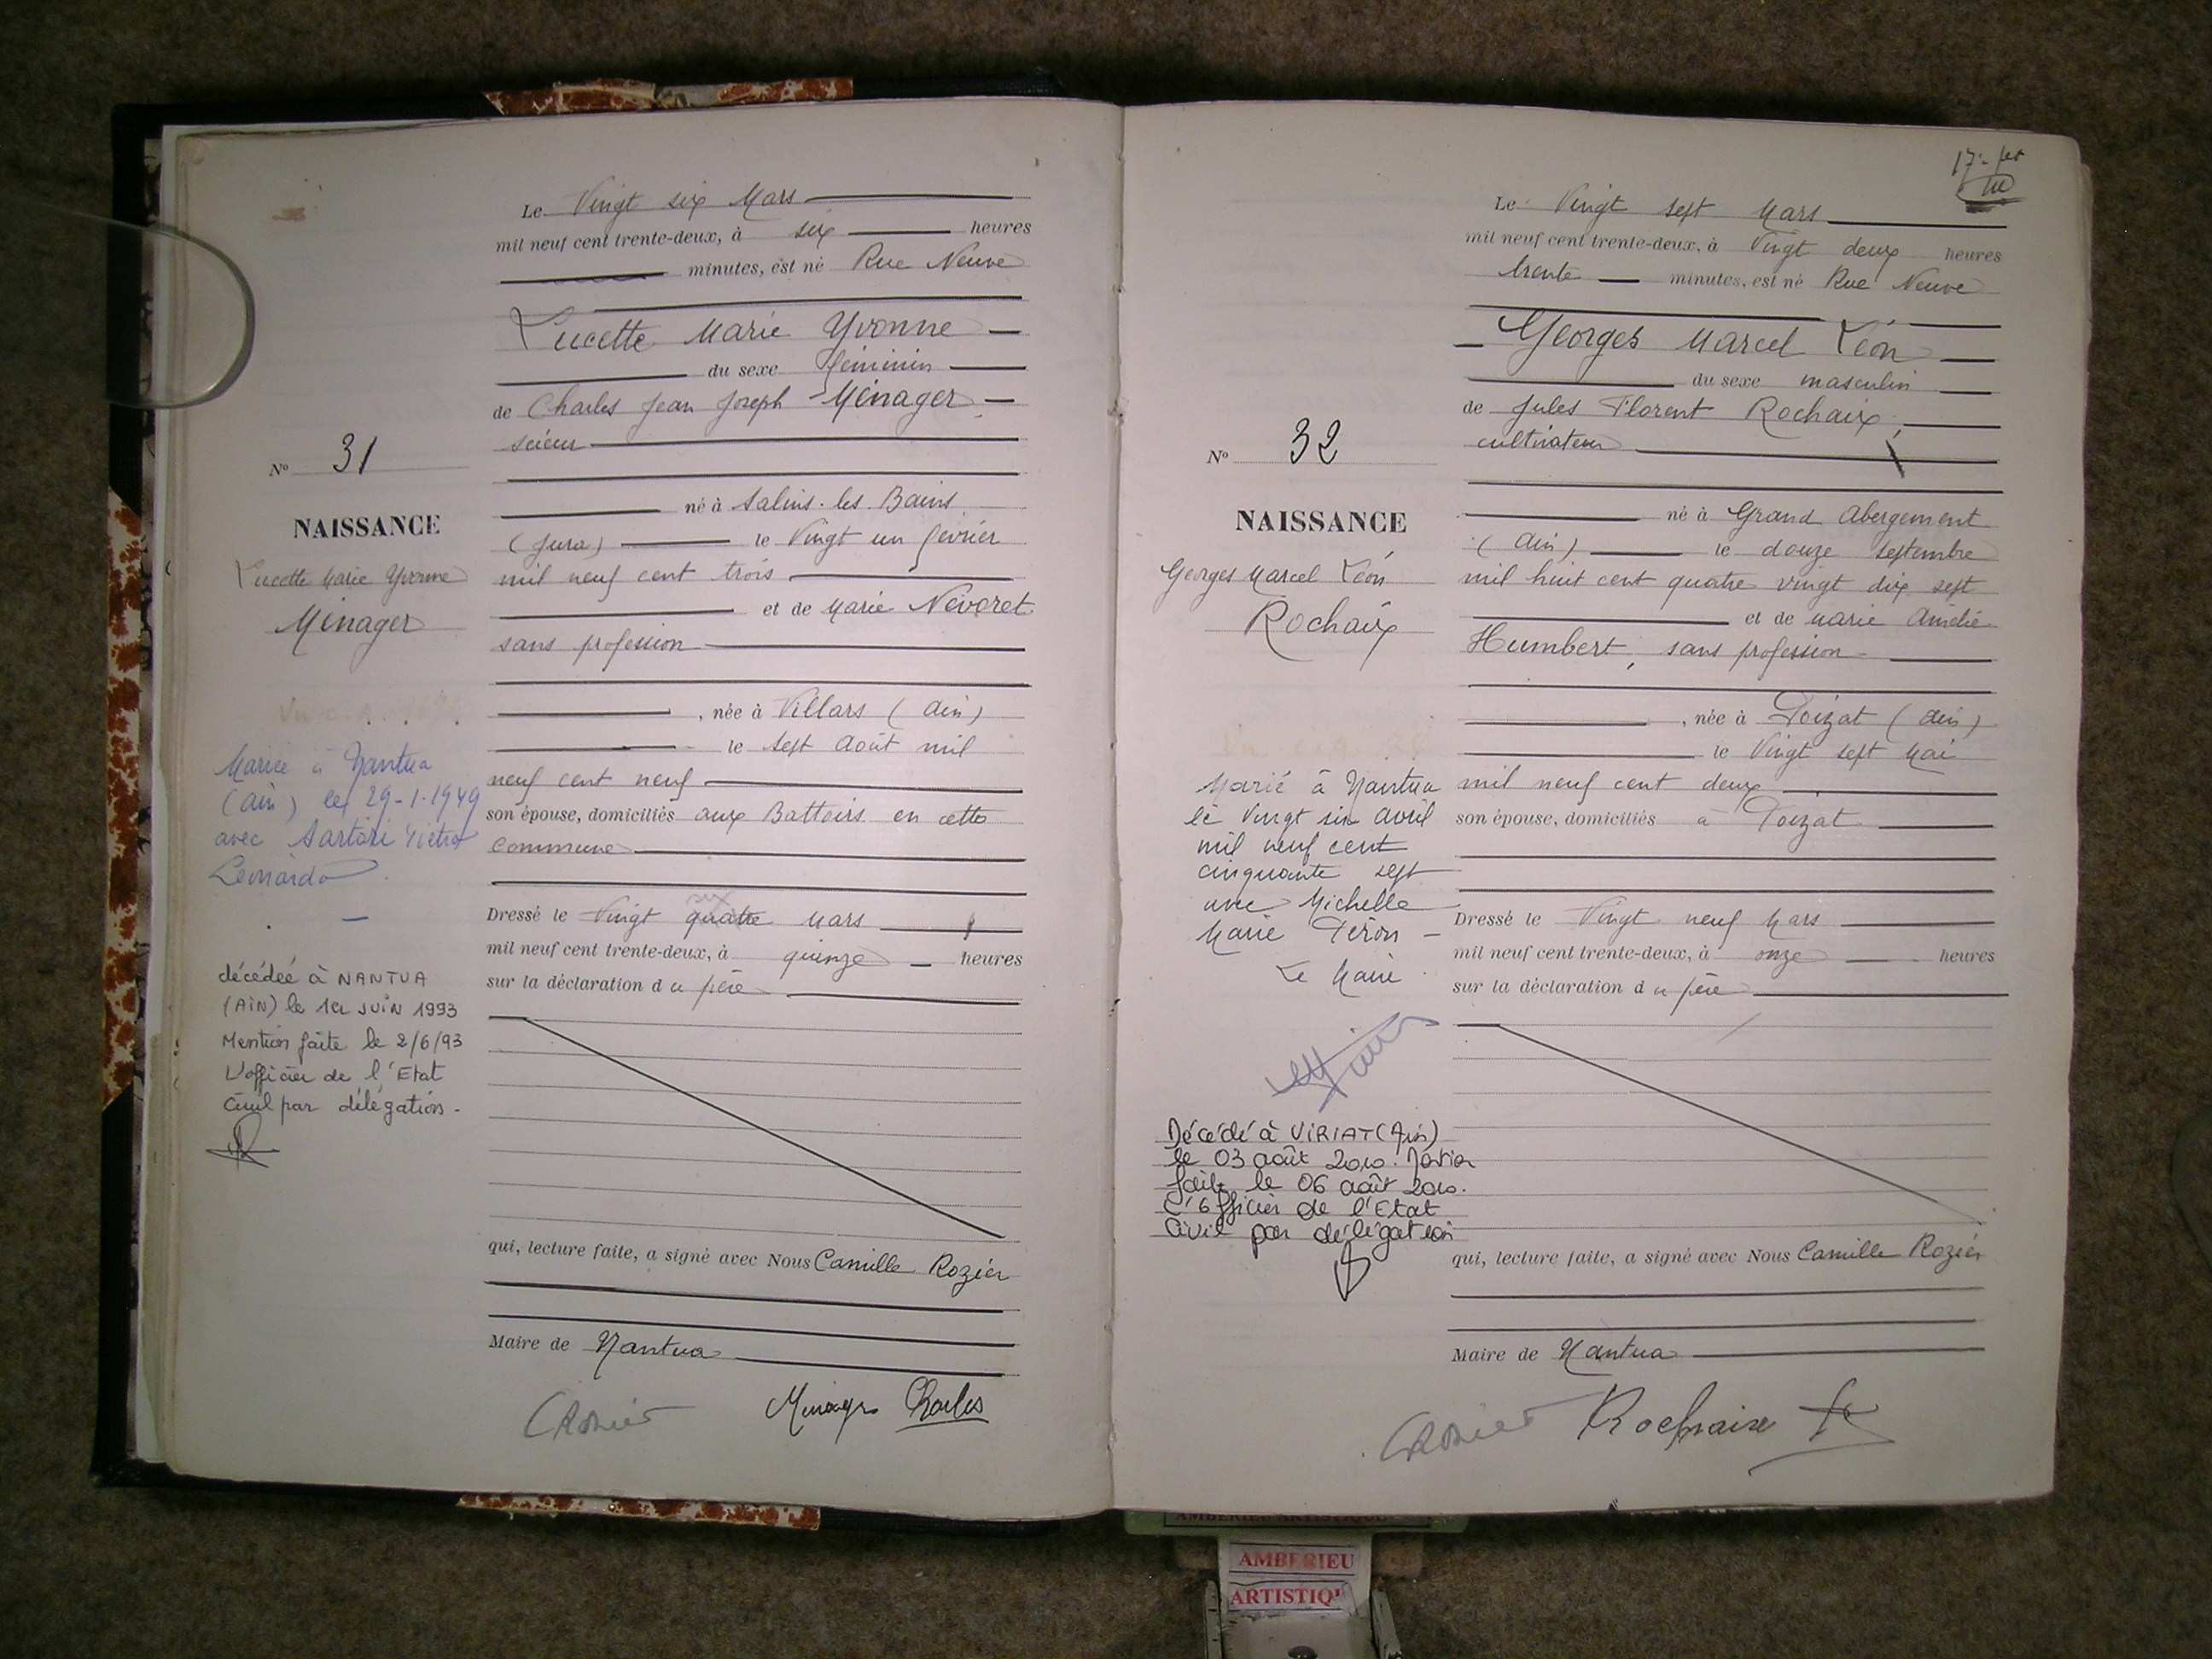 Le Vingt six Mars
mil neuf cent trente-deux, à six heures
minutes, est né Rue Neuve
Lucette Marie Yvonne
du sexe féminin
de Charles Jean Joseph Ménager
scieur
né à Salins-les-Bains
(Jura) le Vingt un février
mil neuf cent trois
et de Marie Nevoret
sans profession
, née à Villars (Ain)
le sept Août mil
neuf cent neuf
son épouse, domiciliés aux Battoirs en cette
commune
Dressé le Vingt quatre Mars
six
mil neuf cent trente-deux, à quinze heures
sur la déclaration du père
qui, lecture faite, a signé avec Nous Camille Rozier
Maire de Nantua
CRozier Ménager Charles
N° 31
NAISSANCE
Lucette Marie Yvonne
Ménager
Mariée à Nantua
(Ain) le 29-1-1949
avec Sartori Pietro
Leonardo
décédée à NANTUA
(AIN) le 1er JUIN 1993
Mention faite le 2/6/93
L'officier de l'Etat
Civil par délégation.
17e
Le Vingt sept Mars
mil neuf cent trente-deux, à Vingt deux heures
trente minutes, est né Rue Neuve
Georges Marcel Léon
du sexe masculin
de Jules Florent Rochaix,
cultivateur
né à Grand Abergement
(Ain) le douze septembre
mil huit cent quatre vingt dix sept
et de Marie Amélie
Humbert, sans profession
, née à Poizat (Ain)
le Vingt sept Mai
mil neuf cent deux
son épouse, domiciliés à Poizat
Dressé le Vingt neuf Mars
mil neuf cent trente-deux, à onze heures
sur la déclaration du père
qui, lecture faite, a signé avec Nous Camille Rozier
Maire de Nantua
CRozier Rochaix
N° 32
NAISSANCE
Georges Marcel Léon
Rochaix
Marié à Nantua
le Vingt six avril
mil neuf cent
cinquante sept
avec Michelle
Marie Péron
Le Maire
Décédé à VIRIAT (Ain)
le 03 août 2010. Mention
faite le 06 août 2010.
L'Officier de l'Etat
Civil par délégation
AMBERIEU ARTISTIQUE
AMBERIEU
ARTISTIQU